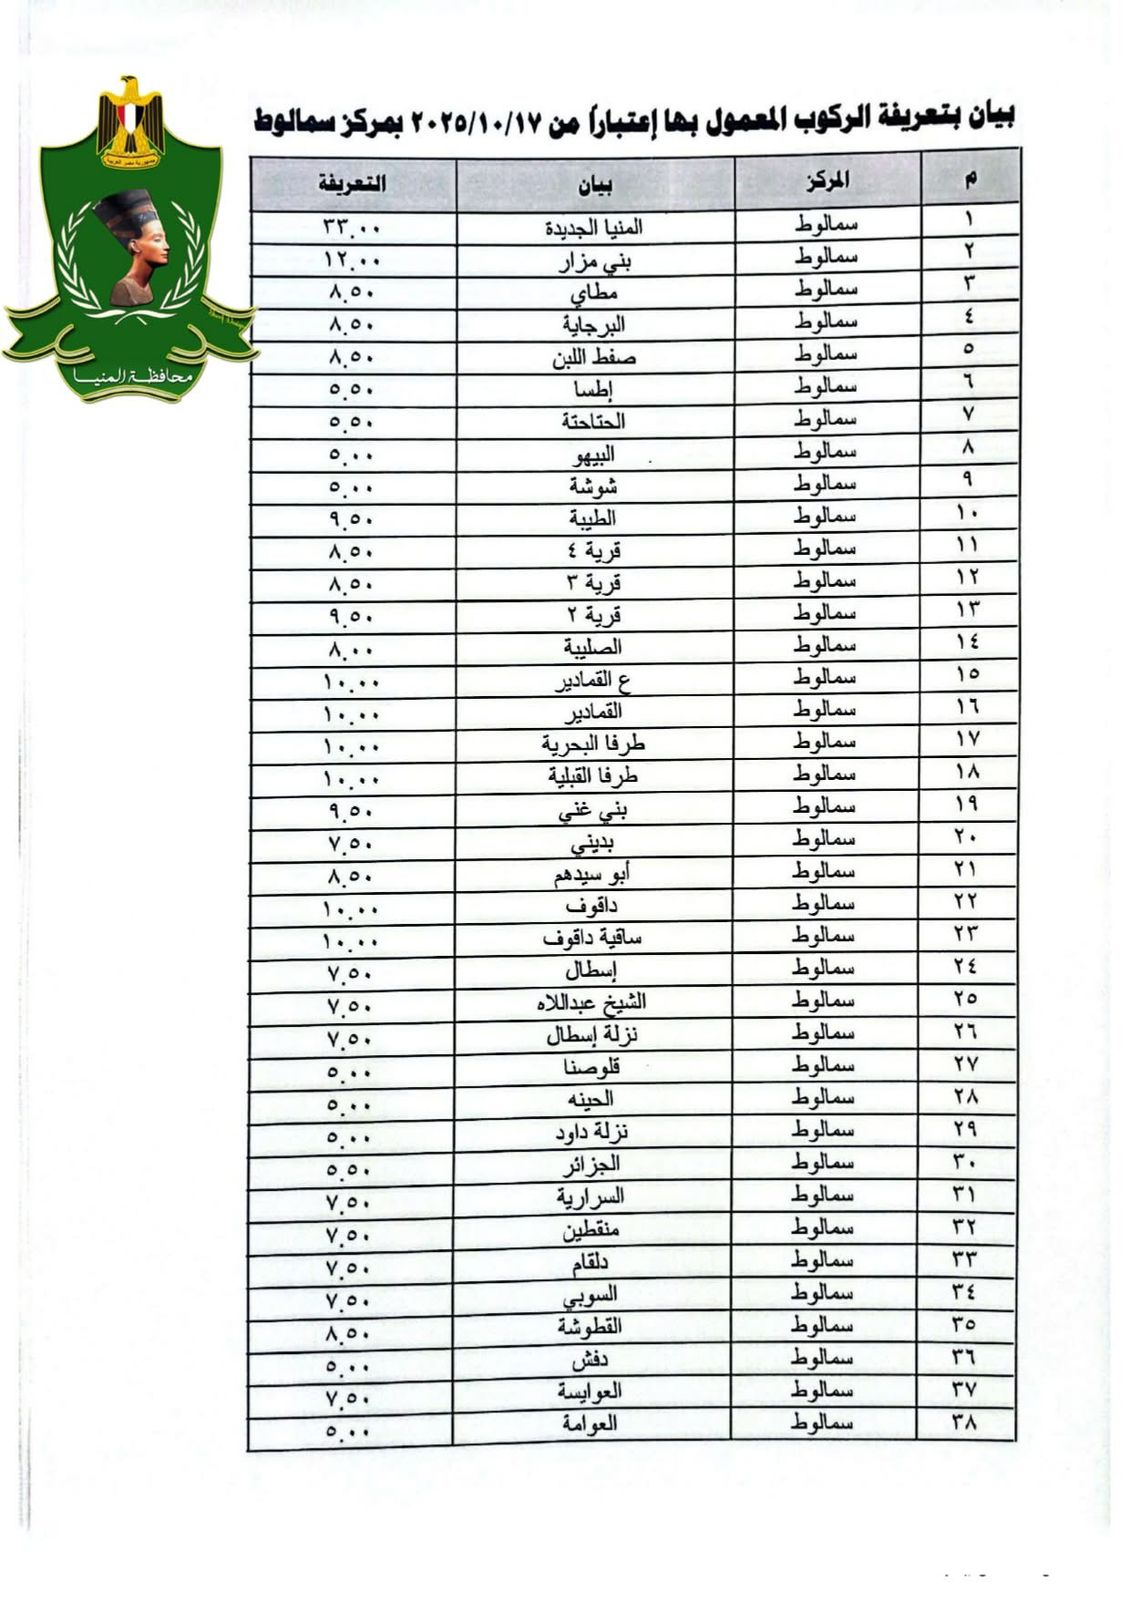 بيان بتعريفة الركوب المعمول بها إعتباراً من ٢٠٢٥/١٠/١٧ بمركز سمالوط
جمهورية مصر العربية
محافظة المنيا
م المركز بيان التعريفة
١ سمالوط المنيا الجديدة ٣٣.٠٠
٢ سمالوط بني مزار ١٢.٠٠
٣ سمالوط مطاي ٨.٥٠
٤ سمالوط البرجاية ٨.٥٠
٥ سمالوط صفط اللبن ٨.٥٠
٦ سمالوط إطسا ٥.٥٠
٧ سمالوط الحتاحتة ٥.٥٠
٨ سمالوط البيهو ٥.٠٠
٩ سمالوط شوشة ٥.٠٠
١٠ سمالوط الطيبة ٩.٥٠
١١ سمالوط قرية ٤ ٨.٥٠
١٢ سمالوط قرية ٣ ٨.٥٠
١٣ سمالوط قرية ٢ ٩.٥٠
١٤ سمالوط الصليبة ٨.٠٠
١٥ سمالوط ع القمادير ١٠.٠٠
١٦ سمالوط القمادير ١٠.٠٠
١٧ سمالوط طرفا البحرية ١٠.٠٠
١٨ سمالوط طرفا القبلية ١٠.٠٠
١٩ سمالوط بني غني ٩.٥٠
٢٠ سمالوط بديني ٧.٥٠
٢١ سمالوط أبو سيدهم ٨.٥٠
٢٢ سمالوط داقوف ١٠.٠٠
٢٣ سمالوط ساقية داقوف ١٠.٠٠
٢٤ سمالوط إسطال ٧.٥٠
٢٥ سمالوط الشيخ عبداللاه ٧.٥٠
٢٦ سمالوط نزلة إسطال ٧.٥٠
٢٧ سمالوط قلوصنا ٥.٠٠
٢٨ سمالوط الحينه ٥.٠٠
٢٩ سمالوط نزلة داود ٥.٠٠
٣٠ سمالوط الجزائر ٥.٥٠
٣١ سمالوط السرارية ٧.٥٠
٣٢ سمالوط منقطين ٧.٥٠
٣٣ سمالوط دلقام ٧.٥٠
٣٤ سمالوط السوبي ٧.٥٠
٣٥ سمالوط القطوشة ٨.٥٠
٣٦ سمالوط دفش ٥.٠٠
٣٧ سمالوط العوايسة ٧.٥٠
٣٨ سمالوط العوامة ٥.٠٠